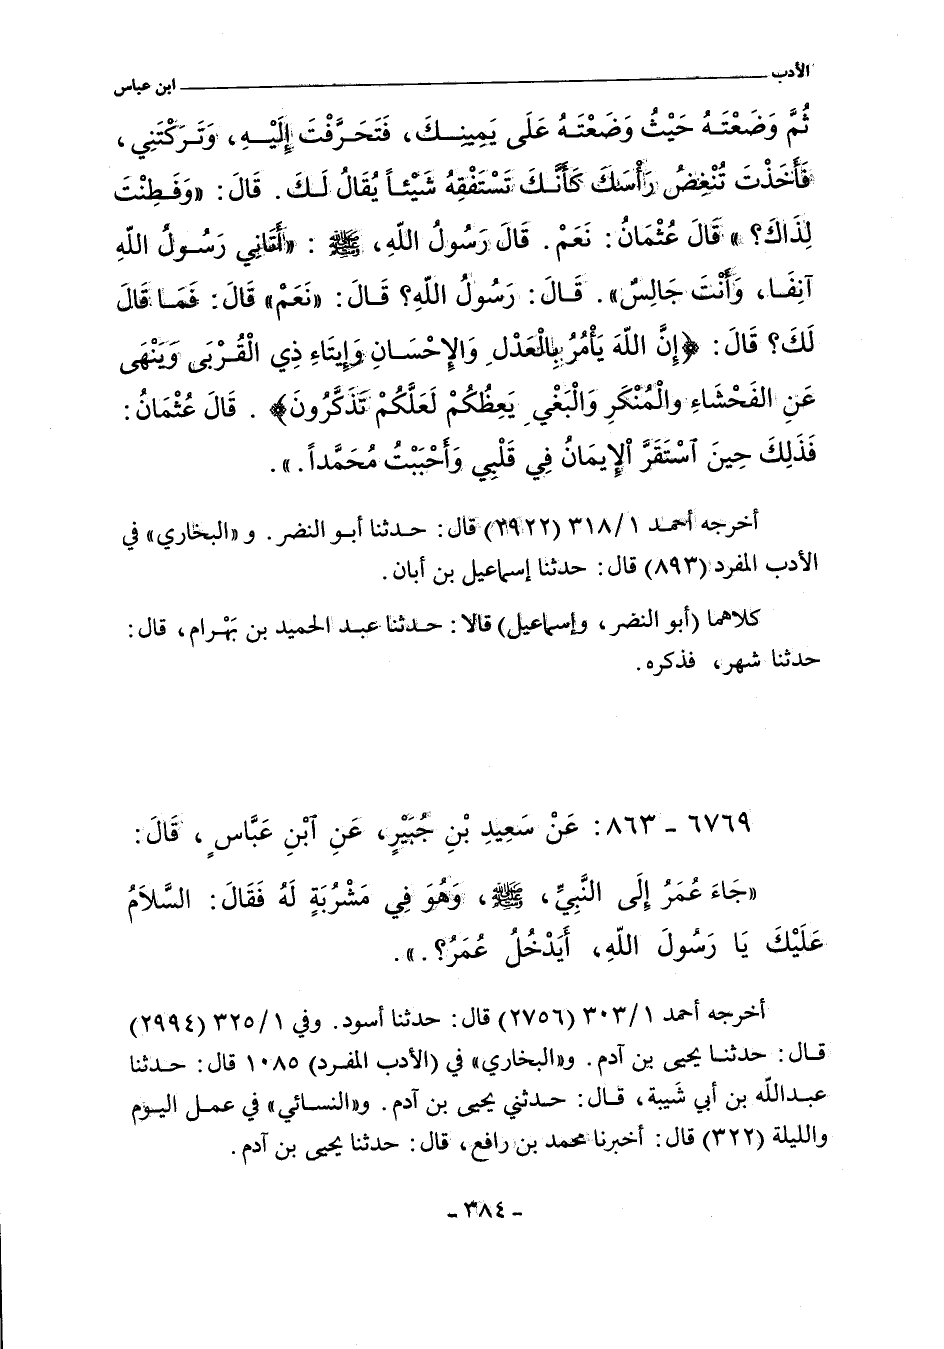 الأدب ابن عباس
ثُمَّ وَضَعْتَهُ حَيْثُ وَضَعْتَهُ عَلَى يَمِينِكَ، فَتَحَرَّفْتَ إِلَيْهِ، وَتَرَكْتَنِي،
فَأَخَذْتَ تُنْغِضُ رَأْسَكَ كَأَنَّكَ تَسْتَفْقِهُ شَيْئاً يُقَالُ لَكَ. قَالَ: «وَفَطِنْتَ
لِذَاكَ؟» قَالَ عُثْمَانُ: نَعَمْ. قَالَ رَسُولُ اللّهِ، ﷺ: «أَتَانِي رَسُولُ اللّهِ
آنِفَا، وَأَنْتَ جَالِسٌ». قَالَ: رَسُولُ اللّهِ؟ قَالَ: «نَعَمْ» قَالَ: فَمَا قَالَ
لَكَ؟ قَالَ: ﴿إِنَّ اللّهَ يَأْمُرُ بِالْعَدْلِ وَالإِحْسَانِ وَإِيتَاءِ ذِي الْقُرْبَى وَيَنْهَى
عَنِ الفَحْشَاءِ والْمُنْكَرِ وَالْبَغْيِ يَعِظُكُمْ لَعَلَّكُمْ تَذَكَّرُونَ﴾. قَالَ عُثْمَانُ:
فَذَلِكَ حِينَ ٱسْتَقَرَّ الْإِيمَانُ فِي قَلْبِي وَأَحْبَبْتُ مُحَمَّداً.».
أخرجه أحمد ١/٣١٨ (٢٩٢٢) قال: حدثنا أبو النضر. و «البخاري» في
الأدب المفرد (٨٩٣) قال: حدثنا إسماعيل بن أبان.
كلاهما (أبو النضر، وإسماعيل) قالا: حدثنا عبد الحميد بن بَهْرام، قال:
حدثنا شهر، فذكره.
٦٧٦٩ - ٨٦٣: عَنْ سَعِيدِ بْنِ جُبَيْرٍ، عَنِ ٱبْنِ عَبَّاسٍ، قَالَ:
«جَاءَ عُمَرُ إِلَى النَّبِيِّ، ﷺ، وَهُوَ فِي مَشْرُبَةٍ لَهُ فَقَالَ: السَّلاَمُ
عَلَيْكَ يَا رَسُولَ اللّهِ، أَيَدْخُلُ عُمَرُ؟.».
أخرجه أحمد ١/٣٠٣ (٢٧٥٦) قال: حدثنا أسود. وفي ١/٣٢٥ (٢٩٩٤)
قال: حدثنا يحيى بن آدم. و«البخاري» في (الأدب المفرد) ١٠٨٥ قال: حدثنا
عبدالله بن أبي شَيبة، قال: حدثني يحيى بن آدم. و«النسائي» في عمل اليوم
والليلة (٣٢٢) قال: أخبرنا محمد بن رافع، قال: حدثنا يحيى بن آدم.
- ٣٨٤ -